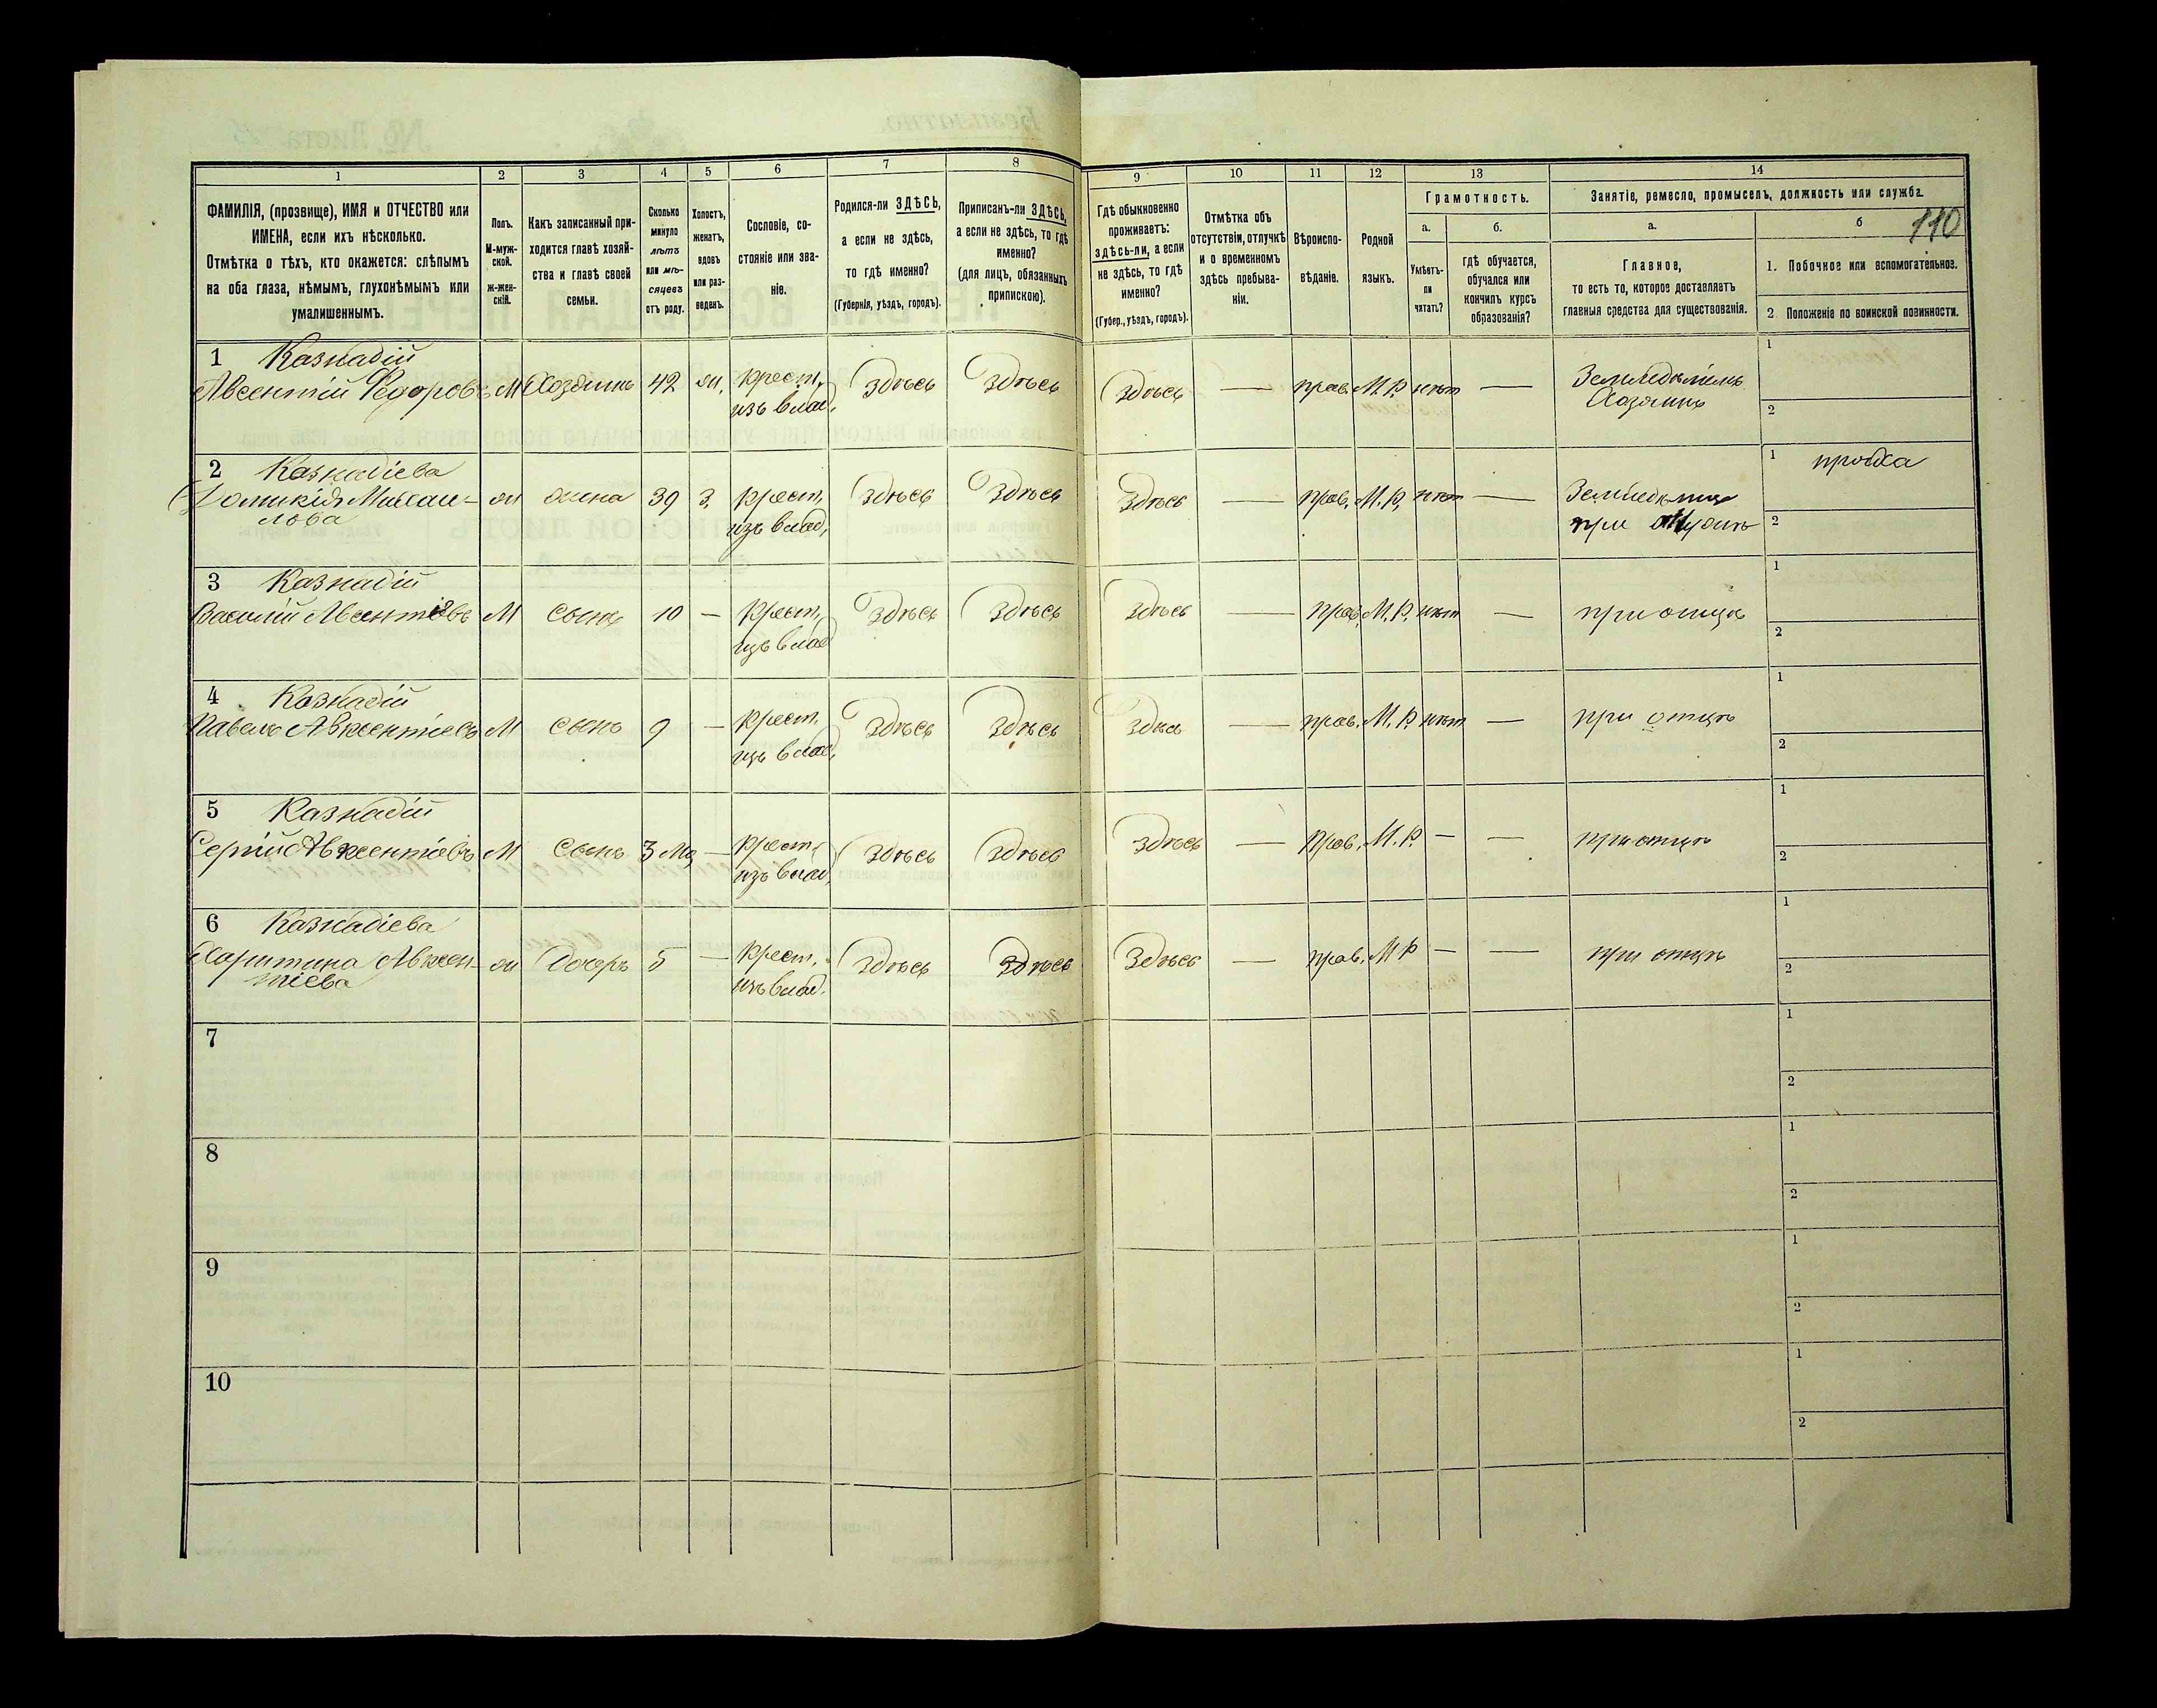 110
1 2 3 4 5 6 7 8 9 10 11 12 13 14
ФАМИЛІЯ, (прозвище), ИМЯ и ОТЧЕСТВО или
ИМЕНА, если ихъ нѣсколько.
Отмѣтка о тѣхъ, кто окажется: слѣпымъ
на оба глаза, нѣмымъ, глухонѣмымъ или
умалишеннымъ.
Полъ.
М-муж-
ской.
ж-жен-
скій.
Какъ записанный при-
ходится главѣ хозяй-
ства и главѣ своей
семьи.
Сколько
минуло
лѣтъ
или мѣ-
сяцевъ
отъ роду.
Холостъ,
женатъ,
вдовъ
или раз-
веденъ.
Сословіе, со-
стояніе или зва-
ніе.
Родился-ли ЗДѢСЬ,
а если не здѣсь,
то гдѣ именно?
(Губернія, уѣздъ, городъ).
Приписанъ-ли ЗДѢСЬ,
а если не здѣсь, то гдѣ
именно?
(для лицъ, обязанныхъ
припискою).
Гдѣ обыкновенно
проживаетъ:
здѣсь-ли, а если
не здѣсь, то гдѣ
именно?
(Губер., уѣздъ, городъ).
Отмѣтка объ
отсутствіи, отлучкѣ
и о временномъ
здѣсь пребыва-
ніи.
Вѣроиспо-
вѣданіе.
Родной
языкъ.
Грамотность.
а.
Умѣетъ-
ли
читать?
б.
гдѣ обучается,
обучался или
кончилъ курсъ
образованія?
Занятіе, ремесло, промыселъ, должность или служба.
а.
Главное,
то есть то, которое доставляетъ
главныя средства для существованія.
б
1. Побочное или вспомогательное.
2. Положеніе по воинской повинности.
1 Казнадій
Авсентій Федоровъ М Хозяинъ 42 ж. крест. здѣсь здѣсь здѣсь — прав. М.Р. нѣт — Земледѣлецъ 1
изъ влад. Хозяинъ 2
2 Казнадіева 1 пряжа
Домникія Михаи- ж жена 39 З. крест. здѣсь здѣсь здѣсь — прав. М.Р. нѣт — Земледѣлица
лова изъ влад. при мужѣ 2
3 Казнадій 1
Василій Авсентіевъ М Сынъ 10 — крест. здѣсь здѣсь здѣсь — прав. М.Р. нѣт — при отцѣ
изъ влад 2
4 Казнадій 1
Павелъ Авксентіевъ М Сынъ 9 — крест. здѣсь здѣсь здѣсь — прав. М.Р. нѣт — при отцѣ
изъ влад. 2
5 Казнадій 1
Сергій Авксентіевъ М Сынъ 3 Мц — крест. здѣсь здѣсь здѣсь — прав. М.Р. — — при отцѣ
изъ влад. 2
6 Казнадіева 1
Харитина Авксен- ж Дочерь 5 — крест. здѣсь здѣсь здѣсь — прав. М Р — — при отцѣ
тіева изъ влад. 2
7 1
2
8 1
2
9 1
2
10 1
2